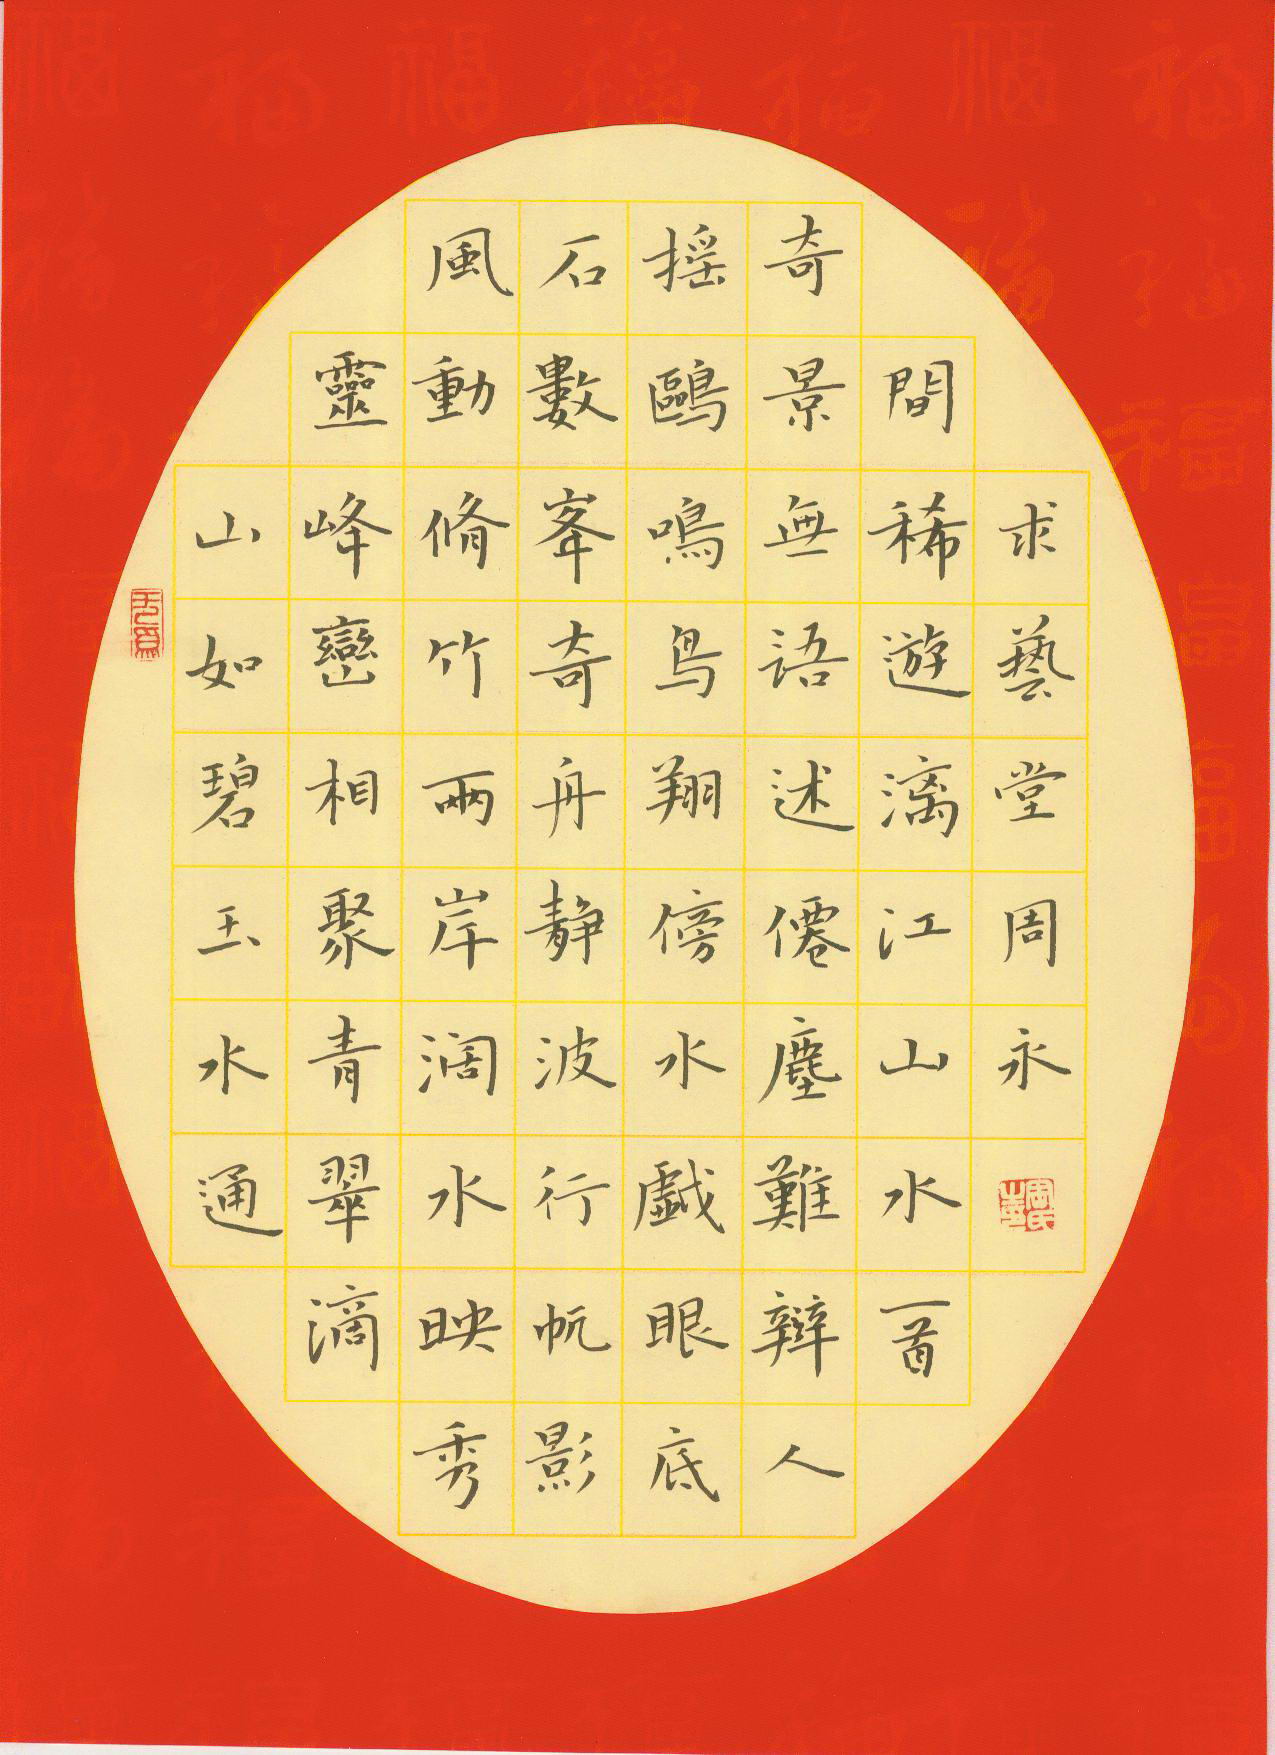 山如碧玉水通
靈峰巒相聚青翠滴
風動脩竹兩岸濶水映秀
石數峯奇舟静波行帆影
摇鷗鳴鳥翔傍水戲眼底
奇景無語述僊塵難辯人
間稀遊漓江山水一首
求藝堂周永